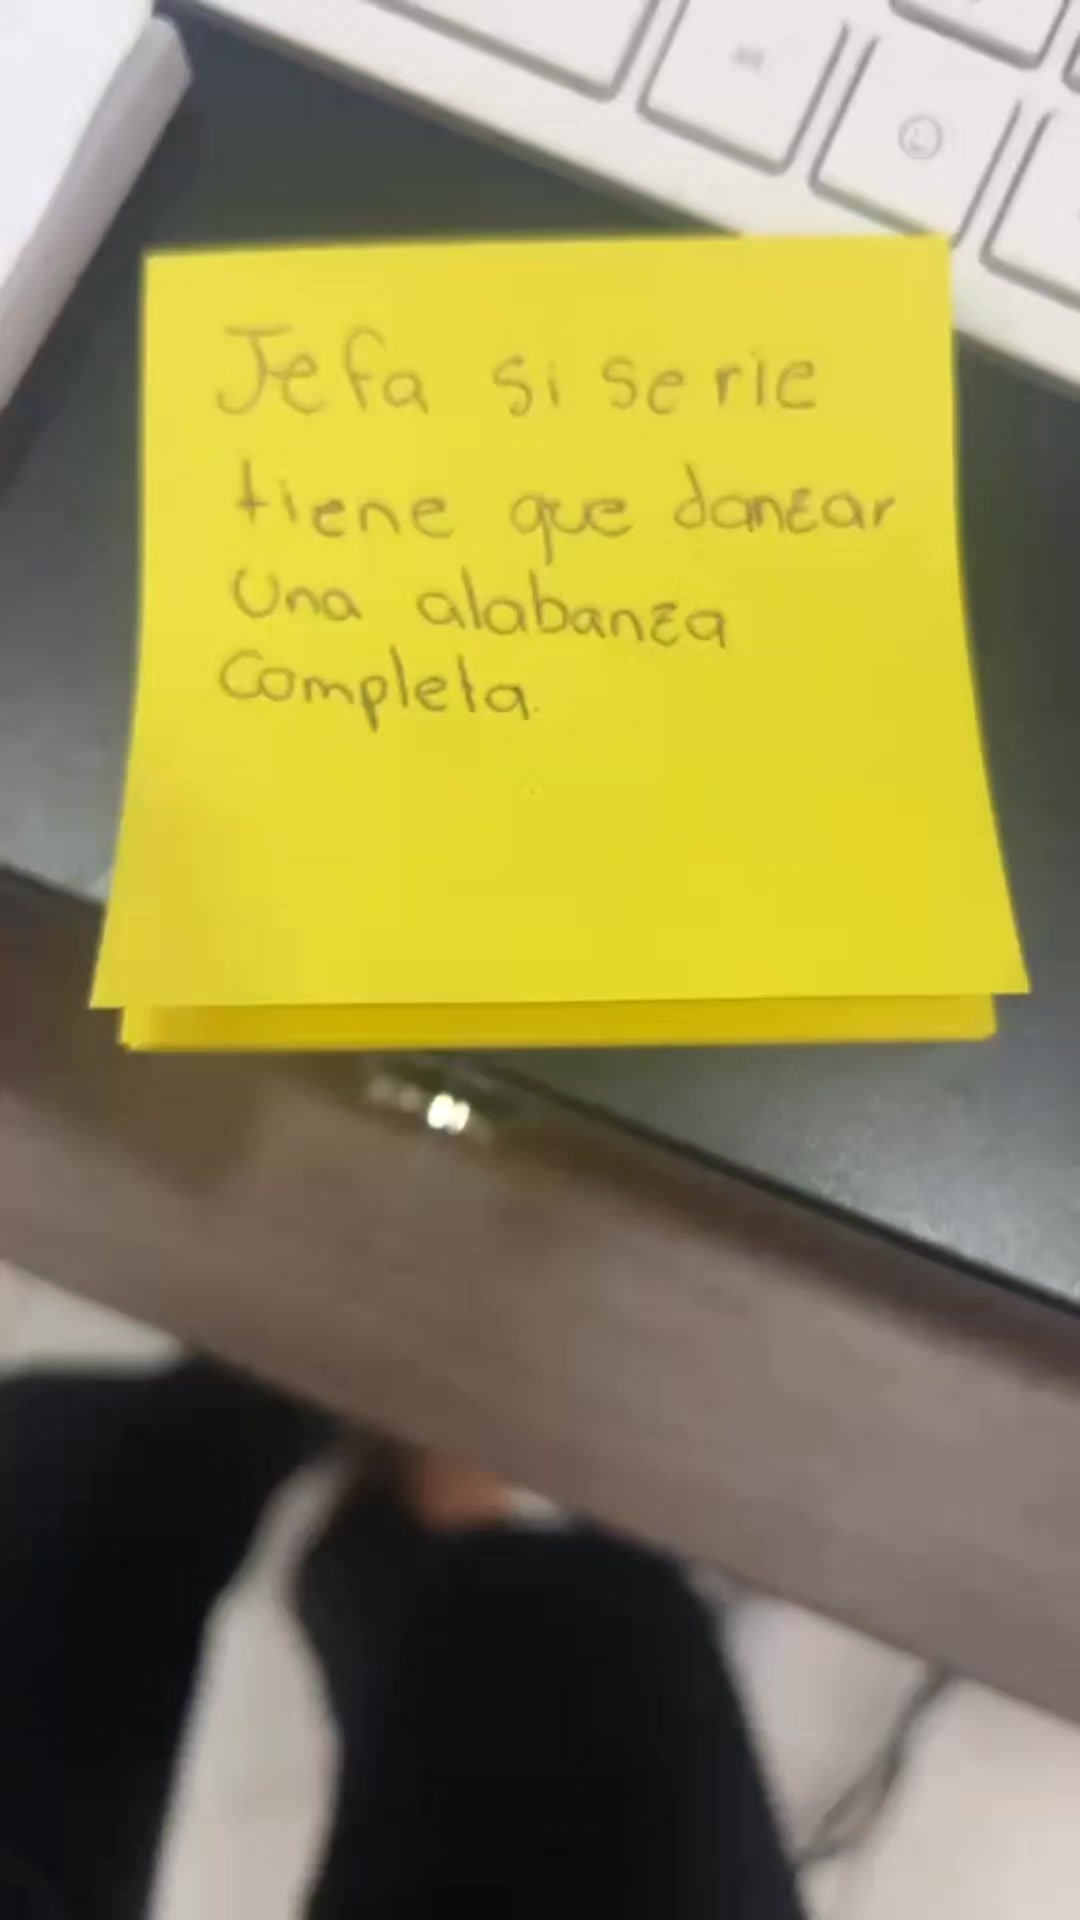 Jefa si se rie
tiene que danzar
una alabanza
completa.